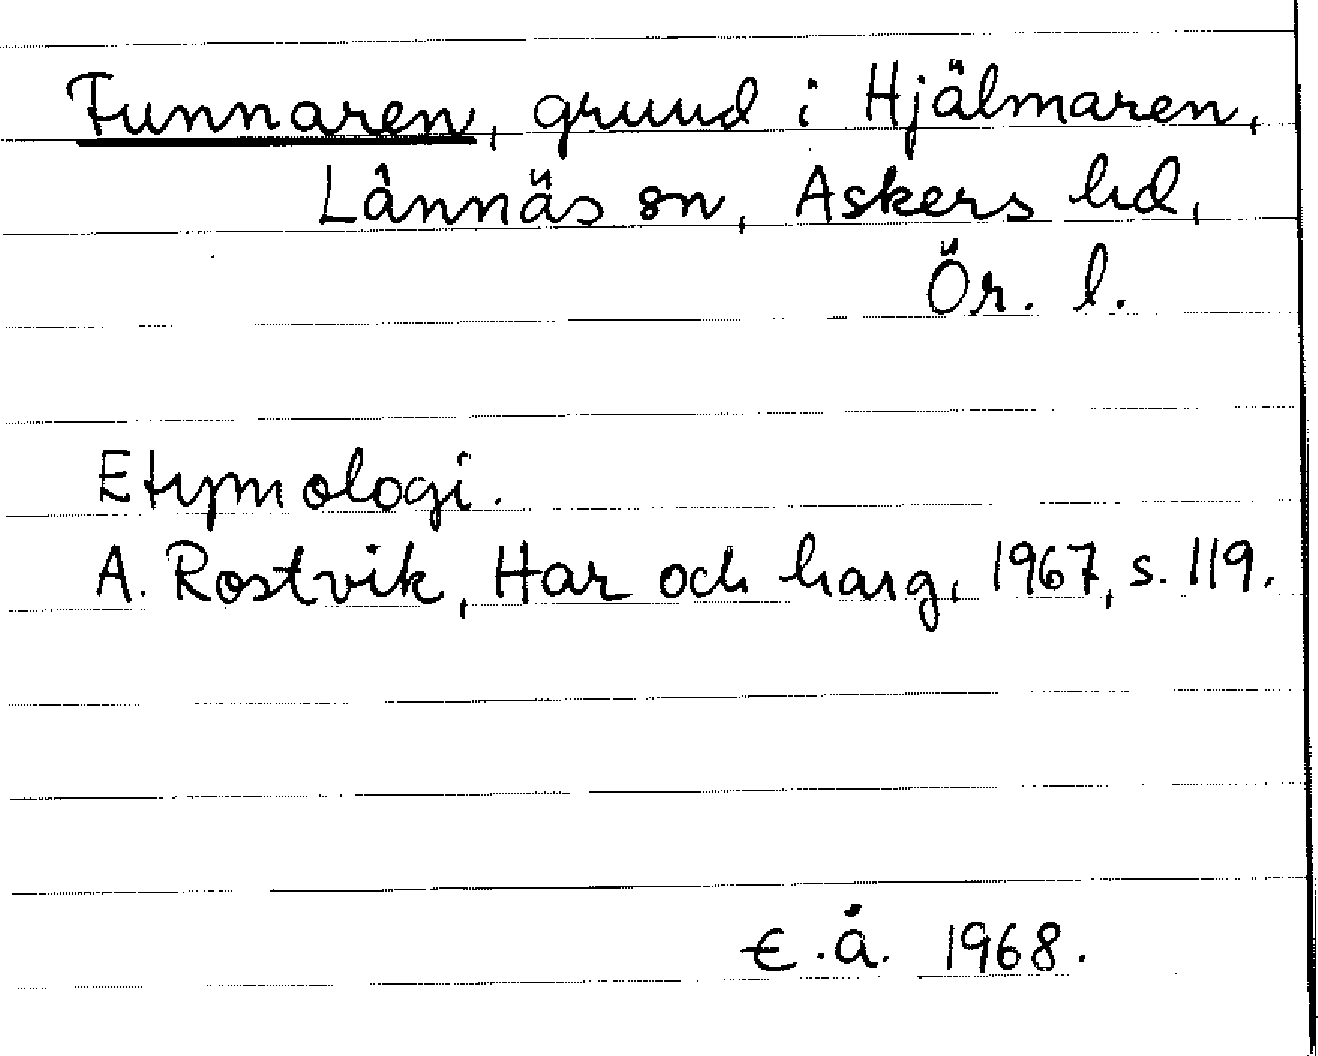 Funnaren, grund i Hjälmaren,
Lännäs sn, Askers hd,
Ör. l.
Etymologi.
A. Rostvik, Har och harg, 1967, s. 119.
E.Å. 1968.